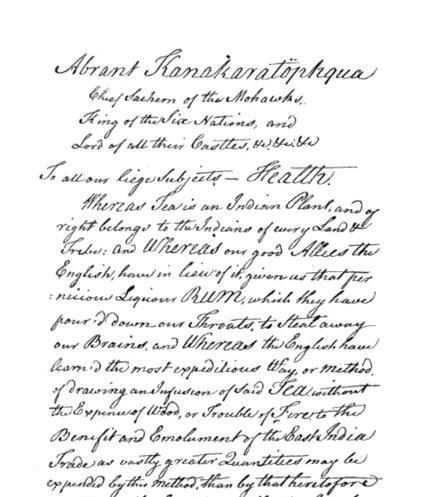 Abrant Kanakaratophqua
Chief Sachem of the Mohawks,
King of the Six Nations, and
Lord of all their Castles, &c. &c. &c
To all our liege Subjects — Health.
Whereas Tea is an Indian Plant, and of
right belongs to the Indians of every Land &
Tribe: and Whereas our good Allies the
English, have in lieu of it, given us that per
:nicious Liquour RUM, which they have
pour'd down our Throats, to Steal away
our Brains, and Whereas the English have
learn'd the most expeditious Way, or method,
of drawing an Infusion of said Tea, without
the Expence of Wood, or Trouble of Fire, to the
Benefit and Emolument of the East India
Trade, as vastly greater Quantities may be
expended by this method, than by that heretofore